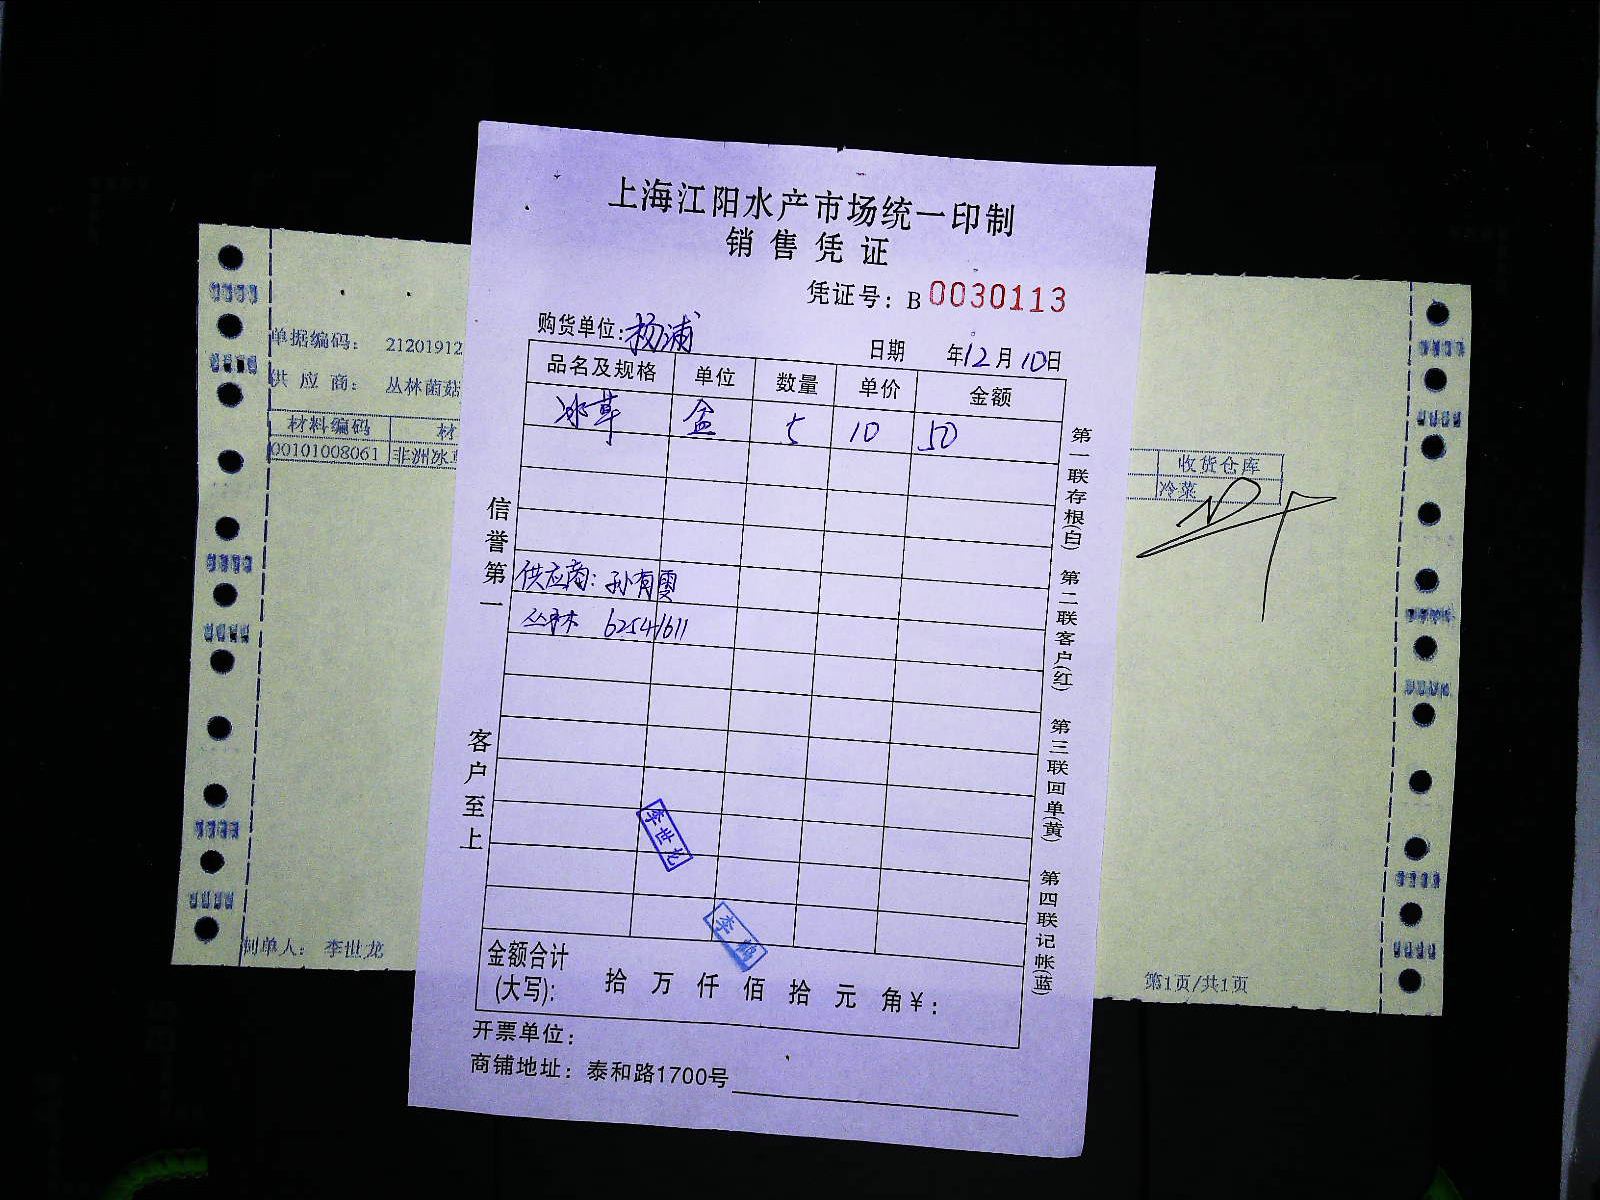 上海江阳水产市场统一印制
销售凭证
凭证号：B 0030113
购货单位：杨浦
日期 年12月10日
品名及规格 单位 数量 单价 金额
冰草 盒 5 10 50
供应商：孙有雯
丛林 62541611
信誉第一
客户至上
李世龙
李鹤
金额合计
(大写)： 拾 万 仟 佰 拾 元 角 ¥：
开票单位：
商铺地址：泰和路1700号
第一联存根(白) 第二联客户(红) 第三联回单(黄) 第四联记帐(蓝)
单据编码： 21201912
供 应 商： 丛林菌菇
材料编码 材
00101008061 非洲冰
制单人： 李世龙
收货仓库
冷菜
第1页/共1页